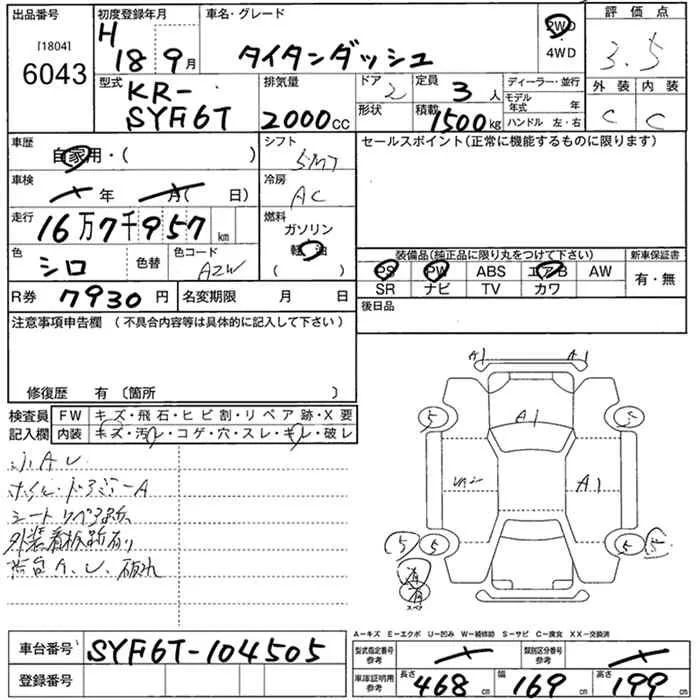 出品番号 初度登録年月 車名・グレード 2WD 評価点
[1804] H 18 9月 タイタンダッシュ ・ 3.5
6043 4WD
型式 排気量 ドア 定員 ディーラー・並行 外装 内装
KR- 2 3人 モデル年式 年 C C
SYF6T 2000cc 形状 積載 1500kg ハンドル 左・右
車歴 シフト セールスポイント(正常に機能するものに限ります)
自家用・( ) 5MT
車検 冷房
年 月( 日) AC
走行 燃料
16万7千957km ガソリン
色 シロ 色替 色コード A2W 軽油 装備品(純正品に限り丸をつけて下さい) 新車保証書
( ) PS PW ABS エアB AW 有・無
R券 7930円 名変期限 月 日 SR ナビ TV カワ
注意事項申告欄 (不具合内容等は具体的に記入して下さい) 後日品
修復歴 有 〔箇所 〕
検査員 FW キズ・飛石・ヒビ割・リペア跡・X要
記入欄 内装 キズ・汚れ・コゲ・穴・スレ・キレ・破レ
小A U
シート リペア
外装看板跡有り
荷台 A、U、破れ
A1 A1
5 A1 5
A1
5 5 5
有
有
スペア
A-キズ E-エクボ U-凹み W-補修跡 S-サビ C-腐食 XX-交換済
車台番号 SYF6T-104505 型式指定番号 参考 類別区分番号 参考
登録番号 車庫証明用 参考 長さ 468cm 幅 169cm 高さ 199cm